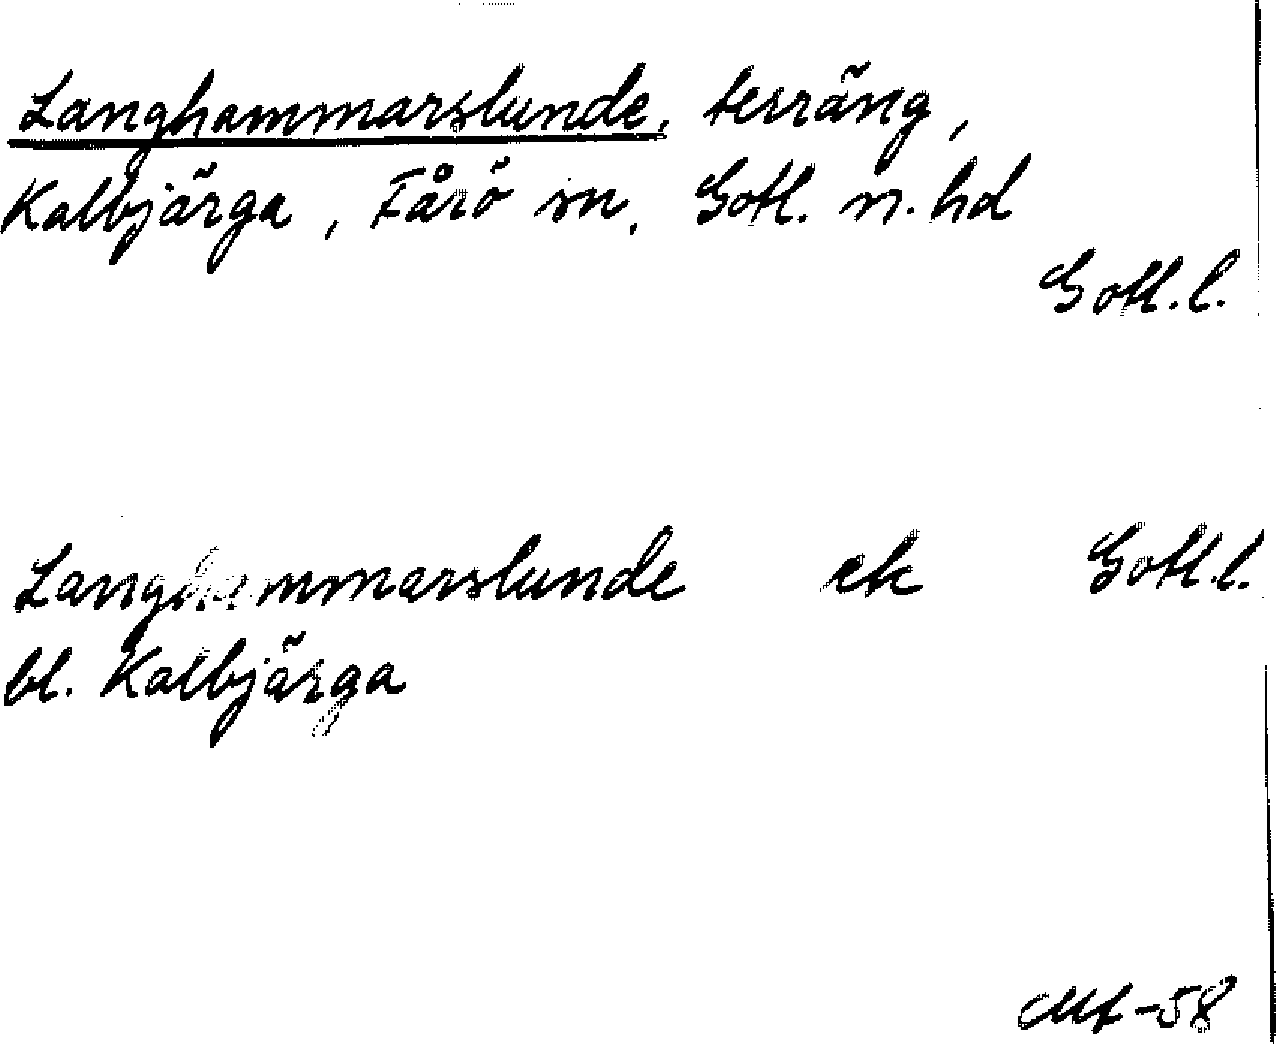 Langhammarslunde, terräng,
Kalbjärga, Fårö sn, Gotl. n. hd
Gotl. l.
Langhammarslunde ek Gotl. l.
bl. Kalbjärga
-58